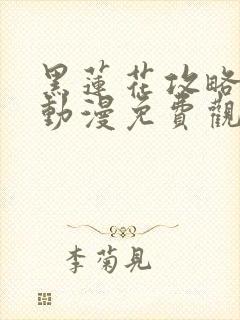 黑蓮花攻略
動漫免費觀
李菊見